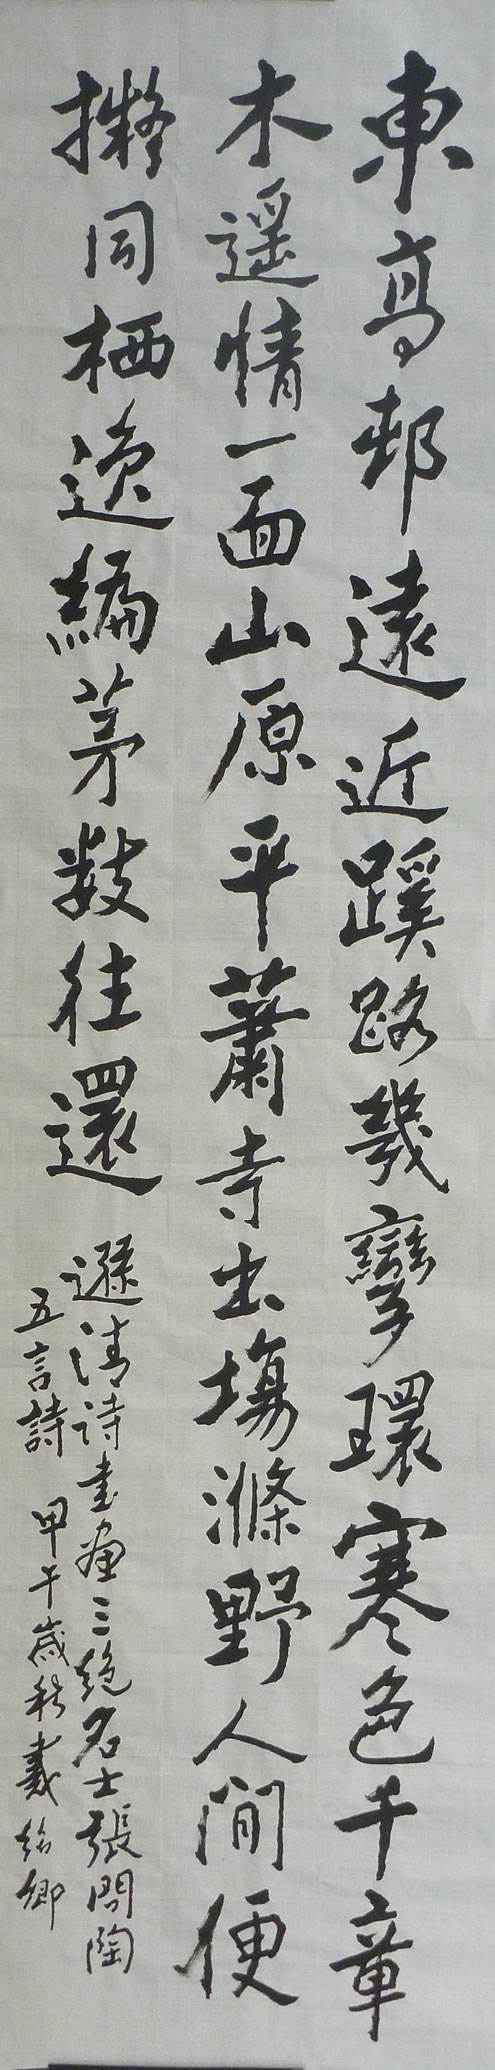 東高邨遠近蹊路幾彎環寒色千章
木遥情一面山原平蕭寺出場滌野人間便
擬同栖逸編茅数往還
遜清诗书画三绝名士張問陶
五言詩 甲午歲秋戴紹卿